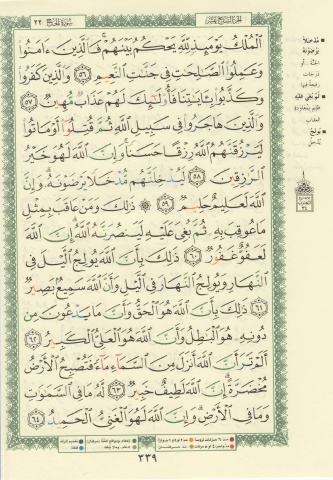 سورة الحج ٢٢
الجزء السابع عشر
ٱلْمُلْكُ يَوْمَئِذٍ لِّلَّهِ يَحْكُمُ بَيْنَهُمْ ۚ فَٱلَّذِينَ ءَامَنُوا۟
وَعَمِلُوا۟ ٱلصَّـٰلِحَـٰتِ فِى جَنَّـٰتِ ٱلنَّعِيمِ ٥٦ وَٱلَّذِينَ كَفَرُوا۟
وَكَذَّبُوا۟ بِـَٔايَـٰتِنَا فَأُو۟لَـٰٓئِكَ لَهُمْ عَذَابٌ مُّهِينٌ ٥٧
وَٱلَّذِينَ هَاجَرُوا۟ فِى سَبِيلِ ٱللَّهِ ثُمَّ قُتِلُوٓا۟ أَوْ مَاتُوا۟
لَيَرْزُقَنَّهُمُ ٱللَّهُ رِزْقًا حَسَنًا ۚ وَإِنَّ ٱللَّهَ لَهُوَ خَيْرُ
ٱلرَّٰزِقِينَ ٥٨ لَيُدْخِلَنَّهُم مُّدْخَلًا يَرْضَوْنَهُۥ ۗ وَإِنَّ
ٱللَّهَ لَعَلِيمٌ حَلِيمٌ ٥٩ ۞ ذَٰلِكَ وَمَنْ عَاقَبَ بِمِثْلِ
مَا عُوقِبَ بِهِۦ ثُمَّ بُغِىَ عَلَيْهِ لَيَنصُرَنَّهُ ٱللَّهُ ۗ إِنَّ ٱللَّهَ
لَعَفُوٌّ غَفُورٌ ٦٠ ذَٰلِكَ بِأَنَّ ٱللَّهَ يُولِجُ ٱلَّيْلَ فِى
ٱلنَّهَارِ وَيُولِجُ ٱلنَّهَارَ فِى ٱلَّيْلِ وَأَنَّ ٱللَّهَ سَمِيعٌۢ بَصِيرٌ
٦١ ذَٰلِكَ بِأَنَّ ٱللَّهَ هُوَ ٱلْحَقُّ وَأَنَّ مَا يَدْعُونَ مِن
دُونِهِۦ هُوَ ٱلْبَـٰطِلُ وَأَنَّ ٱللَّهَ هُوَ ٱلْعَلِىُّ ٱلْكَبِيرُ ٦٢
أَلَمْ تَرَ أَنَّ ٱللَّهَ أَنزَلَ مِنَ ٱلسَّمَآءِ مَآءً فَتُصْبِحُ ٱلْأَرْضُ
مُخْضَرَّةً ۗ إِنَّ ٱللَّهَ لَطِيفٌ خَبِيرٌ ٦٣ لَّهُۥ مَا فِى ٱلسَّمَـٰوَٰتِ
وَمَا فِى ٱلْأَرْضِ ۗ وَإِنَّ ٱللَّهَ لَهُوَ ٱلْغَنِىُّ ٱلْحَمِيدُ ٦٤
مُدْخَلًا
يَرْضَوْنَهُ
بُغِيَ عَلَيْهِ
يُولِجُ
٣٣٩